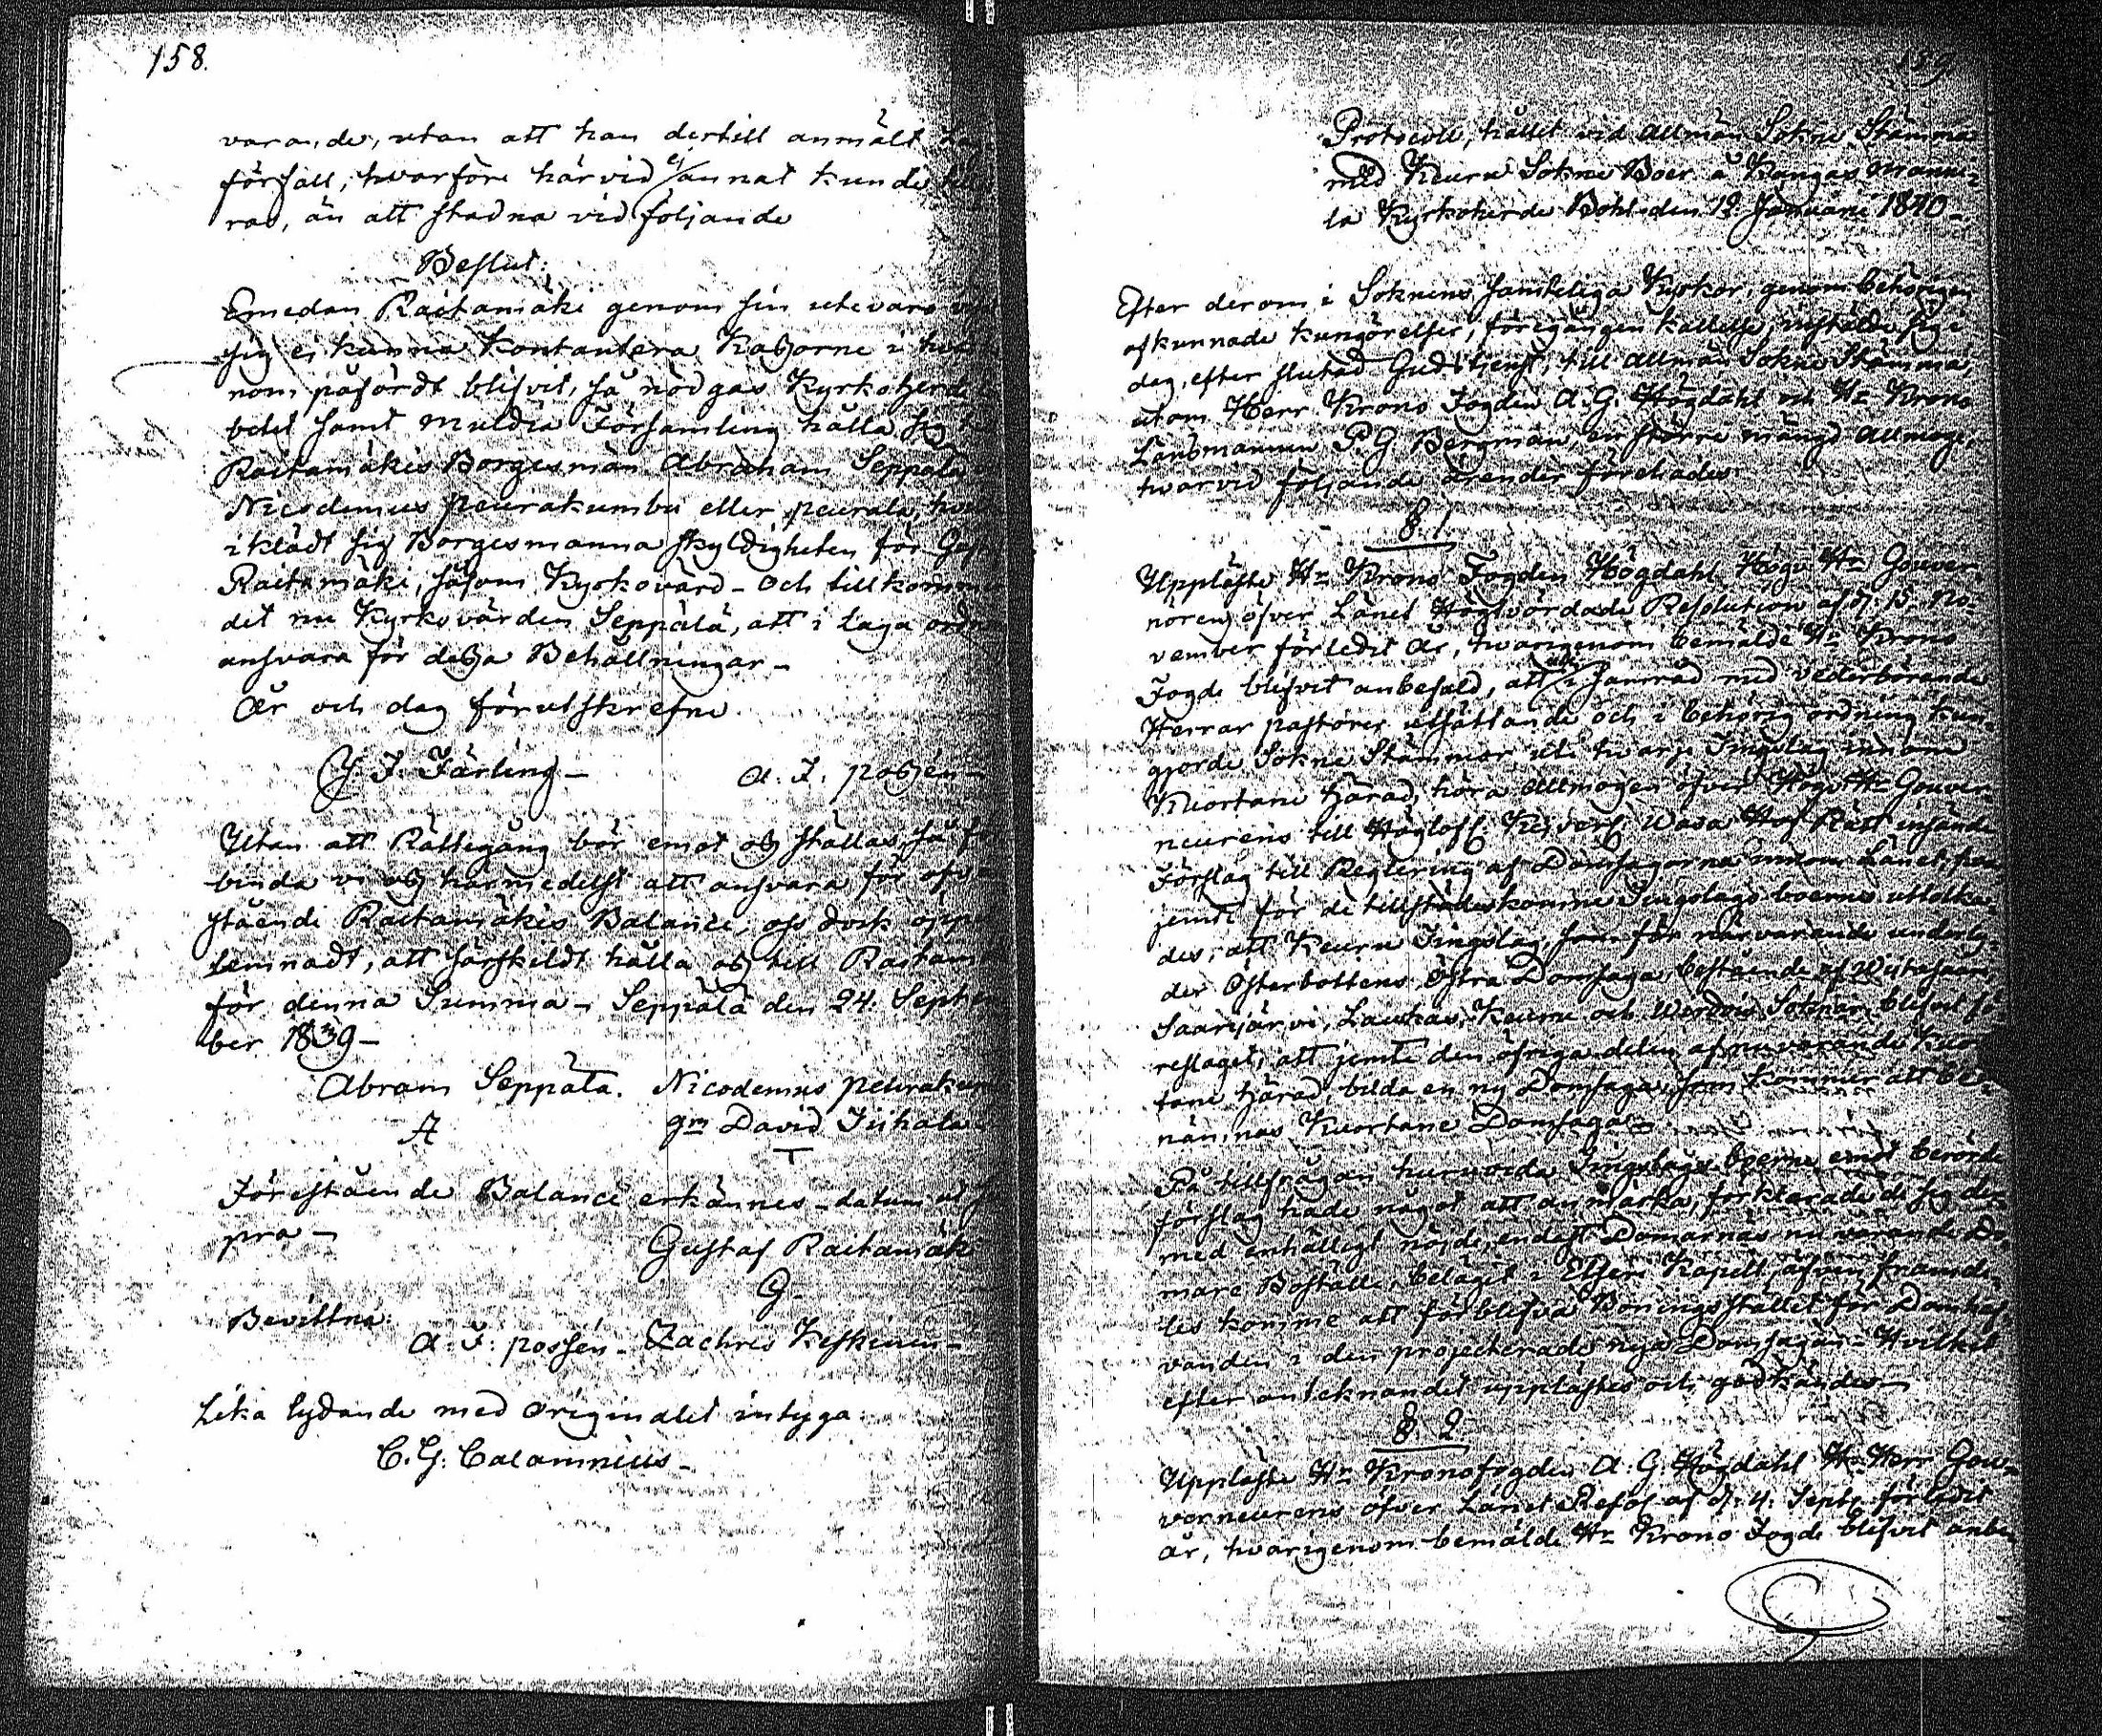 158.
varande, utan att han dertill anmält
förfall; hvarföre härvid ej annat kunde
ras, än att stadna vid följande
Beslut:
Emedan Raitamäki genom sin utevaro
sig ej kunna Kontantera Kassorne i
nom påfördt blifvit, så nödgas Kyrkoherde
betet samt menldia Församling hålla sig
Raitamäkis Borgesmän Abraham Seppälä
Nicodemus peurakumbu eller peurala,
iklädt sig Borgesmanna skyldigheten för
Raitamäki, såsom Kyrkovärd - Och tillkommer
det nu Kyrkovärden Seppälä, att i Laga
ansvara för dessa Behållningar -
År och dag förutskrefne.
G. J. Färling - A. F. possén -
Utan att Rättegång bör emot oss ställas, så
binda vi oss härmedelst att ansvara för ofvan
stående Raitamäkis Balance; oss dock
lemnadt, att särskildt hålla oss till
för denna Summa - Seppälä den 24. Septem
ber 1839 -
Abram Seppälä. Nicodemus
A gm David
Förestående Balance erkännes - datum
pra -
Gustaf Raitamäk
G.
Bevittna:
A. F. possén - Zachris Keskinen -
Lika lydande med Originalet intyga:
C. G. Calamnius -
159
Protocoll, hållet vid Allmän Sokne Stämma
med Keuru Sokne Boer å Kangas manni-
la Kyrkoherde Bohl den 12 Januarii 1840 -
Efter derom i Soknens samteliga Kyrkor, genom behörigen
afkunnade kungörelser, föregången kallelse, instälde sig i
dag, efter slutad Gudstjenst, till Allmän Sokne Stämma,
utom Herr Krono Fogden A. G. Högdahl och Hr Krono
Länsmannen P. G. Bergman, en större mängd Allmoge,
hvarvid följande ärender förehades:
§. 1
Uppläste Hr Krono Fogden Högdahl Högv Hr Gouver-
nörens öfver Länet Höglvördade Resolution af d. 15 No-
vember förledit År, hvarigenom bemälde Hr Krono
Fogde blifvit anbefald, att i samråd med vederbörande
Herrar pastorer utsättande och i behörig ordning kun-
gjorde Sokne Stämmor, uti hvarje Tingslag innom
Kuortane Härad, höra Allmogen öfver Högv Hr Gouver-
neurens till Höglofl. Kejserl. Wasa Hof Rätt insände
Förslag till Reglering af Domsagorna innom Länet,
jemte för de tillstädeskomne Tingslags boerne uttolka-
des, att Keuru Tingslag, som för närvarande underly-
der Österbottens Östra Domsaga bestående af Wiitasaari,
Saarijärvi, Laukas, Keuru och Wirdois Soknar, blifvit fö-
reslaget, att jemte den öfriga delen af nuvarande Kuor-
tane Härad, bilda en ny Domsaga, som kommer att be-
nämnas Kuortane Domsaga -
På tillfrågan huruvida Tingslags boerne emot berörde
förslag hade något att anmärka, förklarade de sig der-
med enhälligt nöjde, endast Domarnäs nu varande Do-
mare Boställe, beläget i Etseri Kapell, äfven framde-
les komme att förblifva Boningsstället för Domhaf-
vanden i den projecterade nya Domsagan - Hvilket
efter antecknandet upplästes och godkändes -
§. 2.
Uppläste Hr Kronofogden A. G. Högdahl Hr Herr Gou-
verneurens öfver Länet Resol af d. 4. Septr förledit
år, hvarigenom bemälde Hr Krono Fogde blifvit anbe-